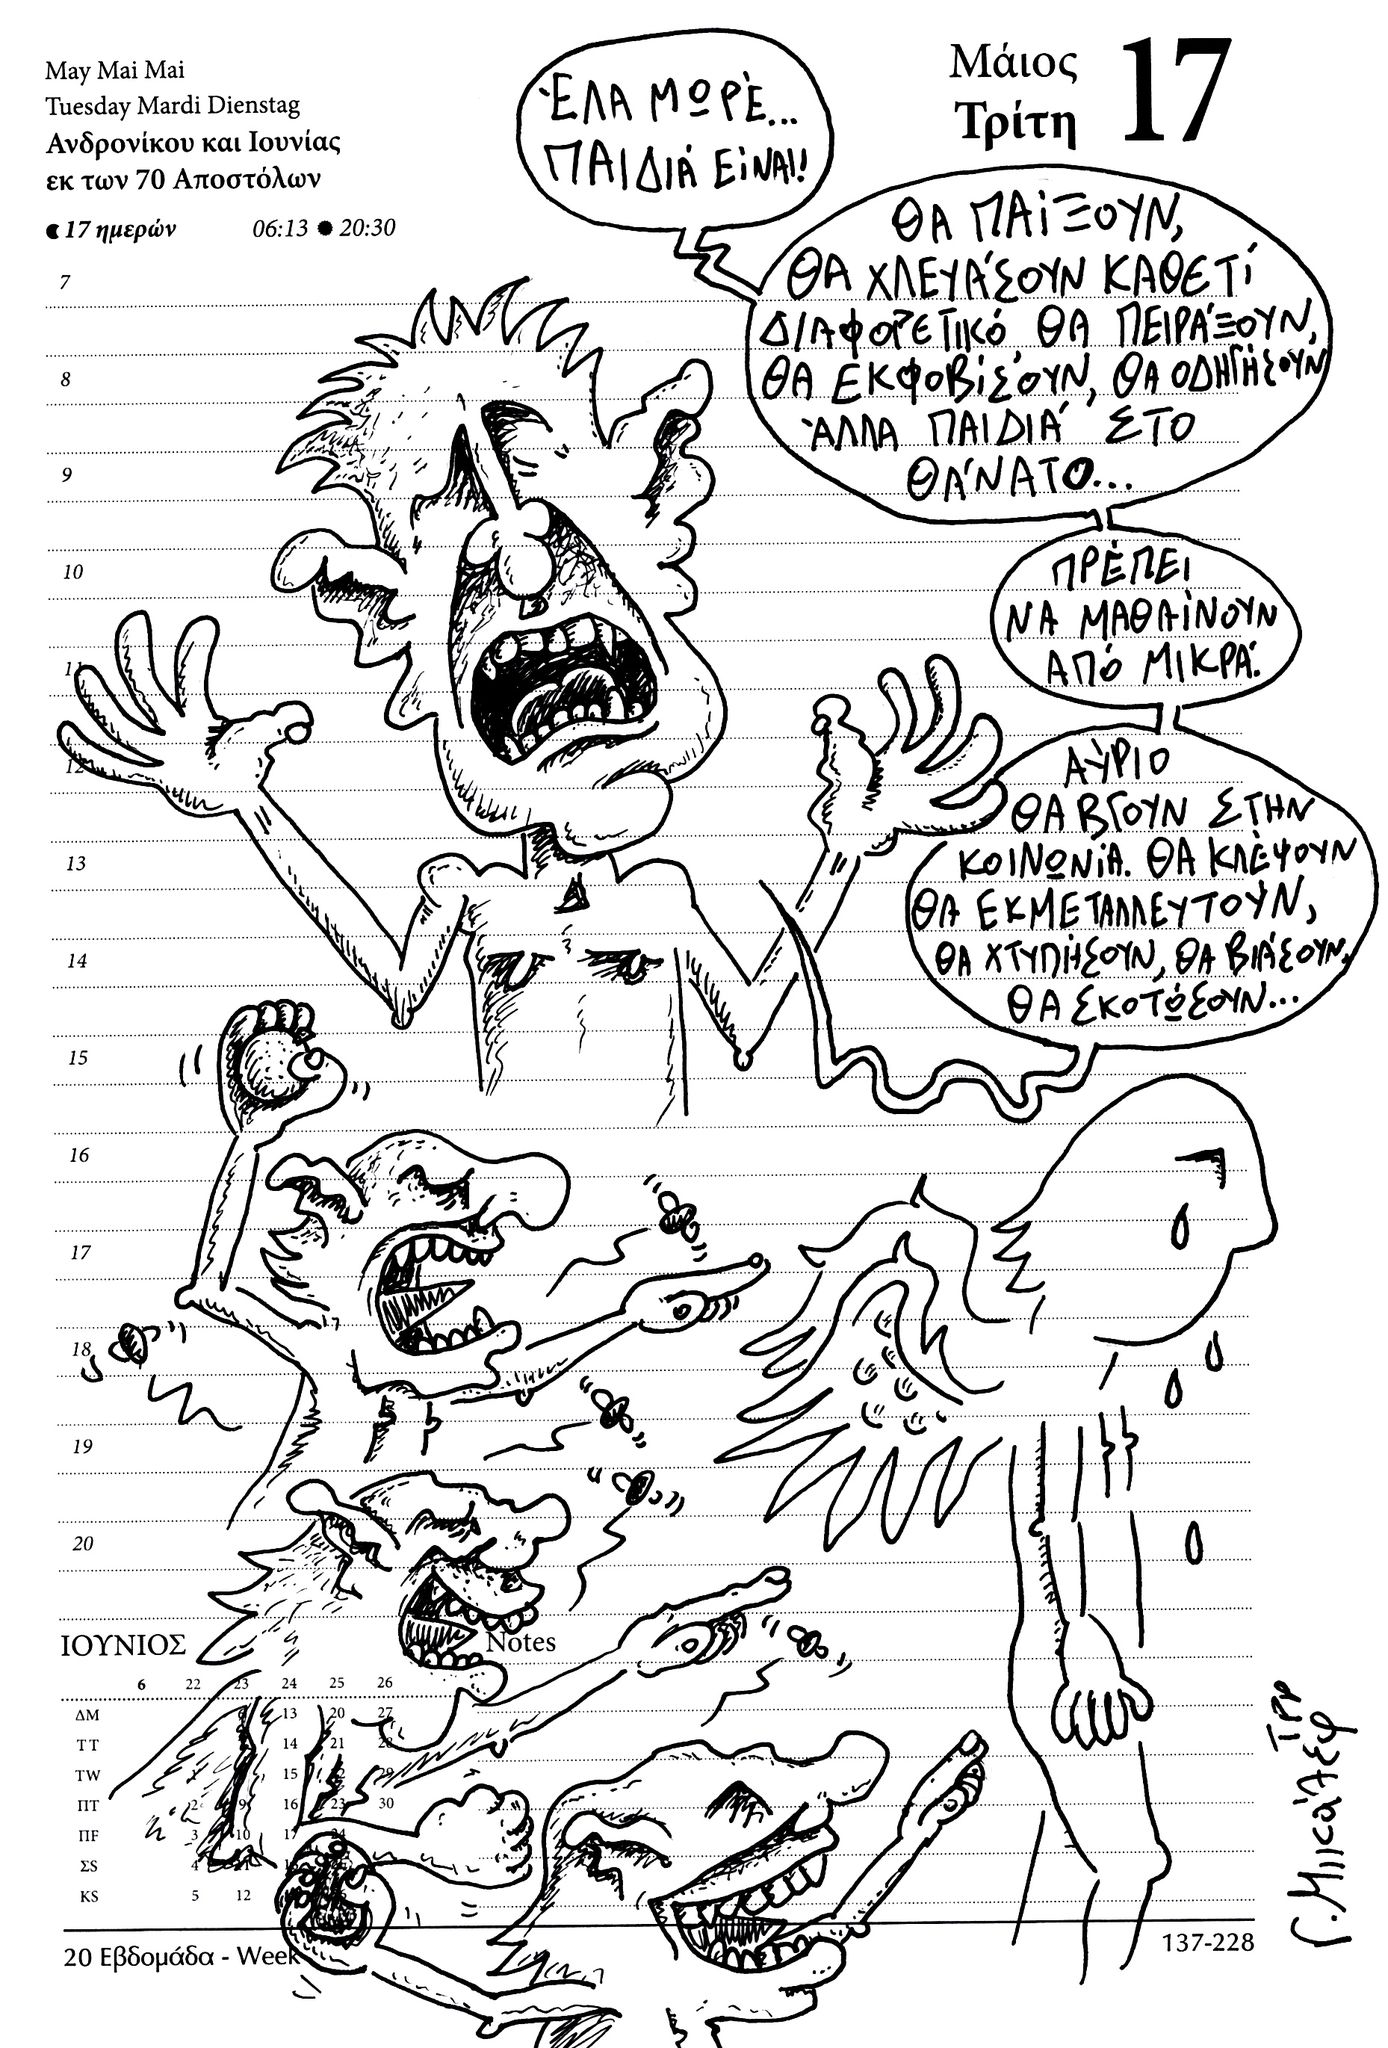 May Mai Mai
Tuesday Mardi Dienstag
Ανδρονίκου και Ιουνίας
εκ των 70 Αποστόλων
17 ημερών 06:13 20:30
Μάιος
Τρίτη
17
ΈΛΑ ΜΩΡΈ...
ΠΑΙΔΙΆ ΕΊΝΑΙ!
ΘΑ ΠΑΊΞΟΥΝ,
ΘΑ ΧΛΕΥΆΣΟΥΝ ΚΑΘΕΤΊ
ΔΙΑΦΟΡΕΤΙΚΌ, ΘΑ ΠΕΙΡΆΞΟΥΝ,
ΘΑ ΕΚΦΟΒΊΣΟΥΝ, ΘΑ ΟΔΗΓΉΣΟΥΝ
ΆΛΛΑ ΠΑΙΔΙΆ ΣΤΟ
ΘΆΝΑΤΟ...
ΠΡΈΠΕΙ
ΝΑ ΜΑΘΑΊΝΟΥΝ
ΑΠΌ ΜΙΚΡΆ.
ΑΎΡΙΟ
ΘΑ ΒΓΟΥΝ ΣΤΗΝ
ΚΟΙΝΩΝΊΑ. ΘΑ ΚΛΈΨΟΥΝ
ΘΑ ΕΚΜΕΤΑΛΛΕΥΤΟΎΝ,
ΘΑ ΧΤΥΠΉΣΟΥΝ, ΘΑ ΒΙΆΣΟΥΝ,
ΘΑ ΣΚΟΤΏΣΟΥΝ...
7
8
9
10
11
12
13
14
15
16
17
18
19
20
ΙΟΥΝΙΟΣ
Notes
6 22 23 24 25 26
ΔΜ 13 20 27
ΤΤ 14 21 28
TW 15 29
ΠΤ 2 9 16 23 30
ΠF 3 10 17 24
ΣS 4
KS 5 12
20 Εβδομάδα - Week
137-228